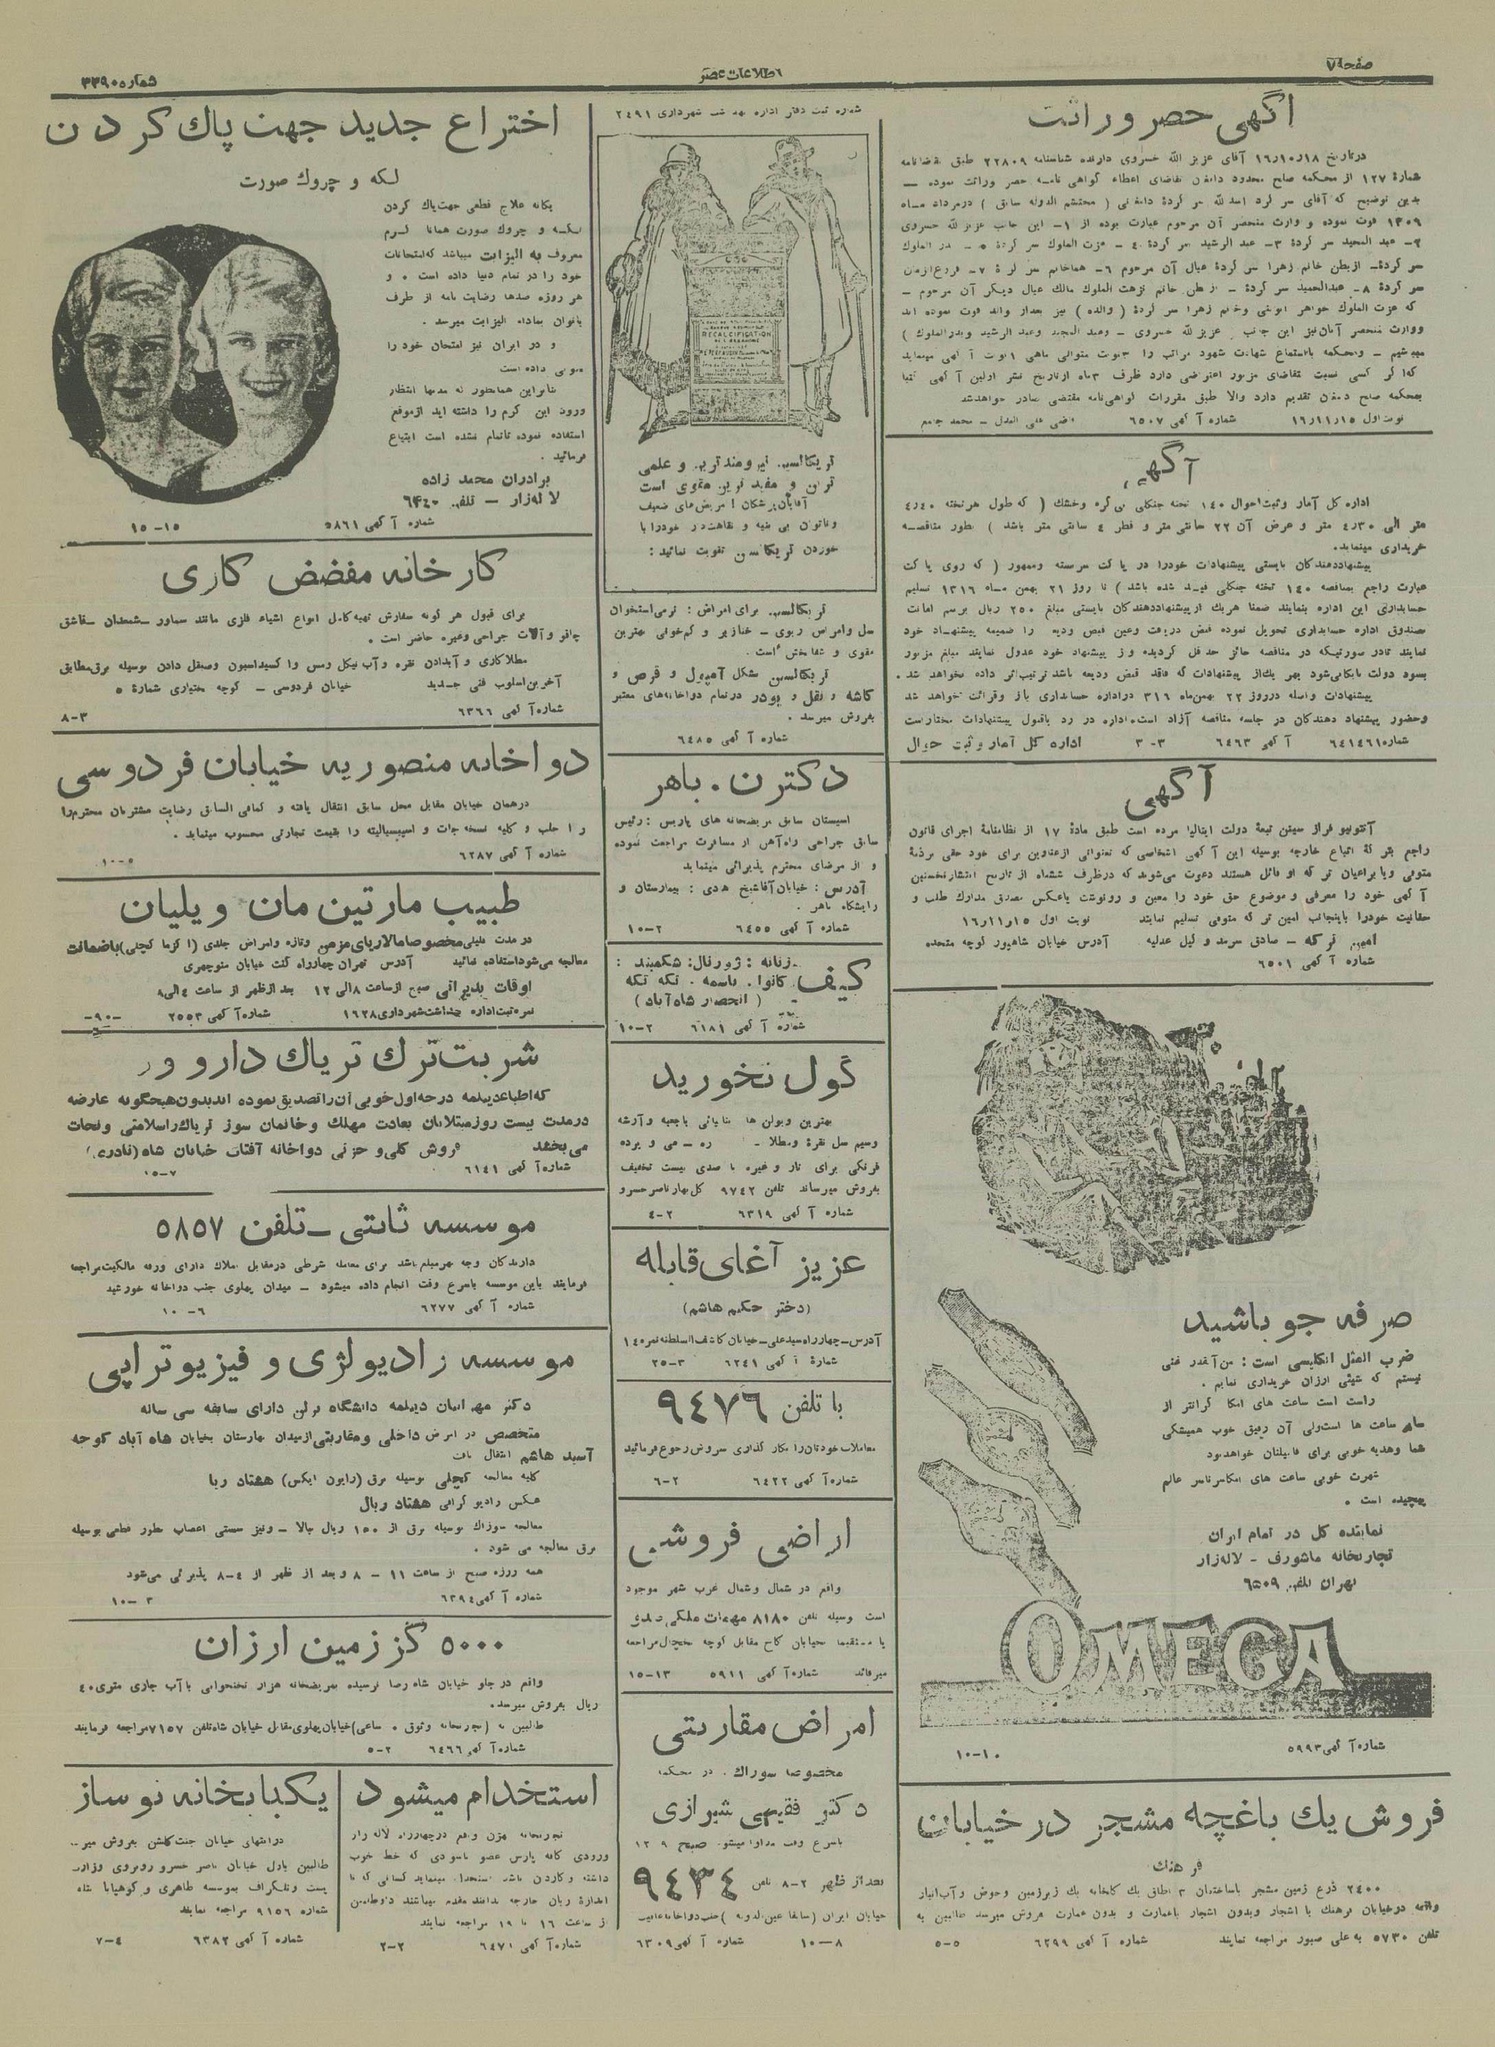 صفحه ۷
اطلاعات عصر
شماره ۳۳۹۰
آگهی حصر وراثت
در تاریخ ۱۶ر۱۰ر۱۸ آقای عزیز الله خسروی دارنده شناسنامه ۲۲۸۰۹ طبق تقاضانامه
شمارهٔ ۱۲۷ از محکمه صلح محدود دامغان تقاضای اعطاء گواهی نامه حصر وراثت نموده –
بدین توضیح که آقای سر کرد اسدالله سر کردهٔ دامغانی ( محتشم الدوله سابق ) در مرداد ماه
۱۳۰۹ فوت نموده و وارث منحصر آن مرحوم عبارت بوده از ۱- این جانب عزیز الله خسروی
۲- عبد المجید سر کردهٔ ۳- عبد الرشید سر کردهٔ ۴- عزت الملوک سر کردهٔ ۵- بدر الملوک
سر کردهٔ – از بطن خانم زهرا سر کردهٔ عیال آن مرحوم ۶- هماخانم سر کردهٔ ۷- فروغ الزمان
سر کردهٔ ۸- عبدالحمید سر کردهٔ – از بطن خانم نزهت الملوک مالک عیال دیگر آن مرحوم –
که عزت الملوک خواهر ابوتنی وخانم زهرا سر کردهٔ ( والده ) نیز بعد از والد فوت نموده اند
ووارث منحصر آنان نیز این جانب عزیز الله خسروی – وعبد المجید وعبد الرشید وبدر الملوک )
میباشیم – ومحکمه باستماع شهادت شهود مراتب را ۳ نوبت متوالی ماهی ۱ نوبت آگهی مینماید
که اگر کسی نسبت بتقاضای مزبور اعتراضی دارد ظرف ۳ ماه از تاریخ نشر اولین آگهی کتبا
بمحکمه صلح دامغان تقدیم دارد والا طبق مقررات گواهی نامه مقتضی صادر خواهد شد
نوبت اول ۱۶ر۱۱ر۱۵ شماره آگهی ۶۵۰۷
آگهی
اداره کل آمار وثبت احوال ۱۴۰ تخته جنگلی بی گره وخشک ( که طول هر تخته ۴ر۴۰
متر الی ۴ر۳۰ متر و عرض آن ۲۲ سانتی متر و قطر ۴ سانتی متر باشد ) بطور مناقصه
خریداری مینماید.
پیشنهاددهندگان بایستی پیشنهادات خودرا در پاکت سربسته وممهور ( که روی پاکت
عبارت راجع بمناقصه ۱۴۰ تخته جنگلی قید شده باشد ) تا روز ۲۱ بهمن ماه ۱۳۱۶ تسلیم
حسابداری این اداره بنمایند ضمنا هر یک از پیشنهاددهندگان بایستی مبلغ ۲۵۰ ریال برسم امانت
بصندوق اداره حسابداری تحویل نموده قبض دریافت وعین قبض ودیعه را ضمیمه پیشنهاد خود
نمایند تا در صورتیکه در مناقصه حائز حداقل گردیده و از پیشنهاد خود عدول نمایند مبلغ مزبور
بسود دولت بایگانی شود بهر یک از پیشنهادات که فاقد قبض ودیعه باشد ترتیب اثر داده نخواهد شد .
پیشنهادات واصله در روز ۲۲ بهمن ماه ۳۱۶ در اداره حسابداری باز وقرائت خواهد شد
وحضور پیشنهاد دهندگان در جلسه مناقصه آزاد است، اداره در رد یا قبول پیشنهادات مختار است
شماره ۶۴۱۴۶۱ آگهی ۶۴۶۳ ۳-۳ اداره کل آمار و ثبت احوال
آگهی
آنتونیو فراز سیتن تبعهٔ دولت ایتالیا مرده است طبق مادهٔ ۱۷ از نظامنامهٔ اجرای قانون
راجع بترکهٔ اتباع خارجه بوسیله این آگهی اشخاصی که بعنوانی از عناوین برای خود حقی بر ذمهٔ
متوفی ویا براعیان ترکه او قائل هستند دعوت میشوند که در ظرف ششماه از تاریخ انتشار نخستین
آگهی خود را معرفی و موضوع حق خود را معین و رونوشت یا عکس مصدق مدارک طلب و
حقانیت خودرا باینجانب امین ترکه متوفی تسلیم نمایند نوبت اول ۱۶ر۱۱ر۱۵
امین ترکه – صادق سرمد وکیل عدلیه آدرس خیابان شاهپور کوچه متحده
شماره آگهی ۶۵۰۱
صرفه جو باشید
ضرب المثل انگلیسی است : من آنقدر غنی
نیستم که شیئی ارزان خریداری نمایم .
راست است ساعت های امگا گرانتر از
سایر ساعت ها است ولی آن رفیق خوب همیشگی
شما وهدیه خوبی برای فامیلتان خواهد بود
شهرت خوبی ساعت های امگا سرتاسر عالم
پیچیده است .
نماینده کل در تمام ایران
تجارتخانه ماشورف - لاله زار
تهران تلفن ۶۵۰۹
OMEGA
شماره آگهی ۵۹۹۳ ۱۰-۱۰
فروش یک باغچه مشجر در خیابان
فرهنگ
۲۴۰۰ ذرع زمین مشجر باساختمان ۳ اطاق یک گلخانه یک زیرزمین وحوض و آب انبار
واقعه در خیابان فرهنگ با اشجار وبدون اشجار باعمارت و بدون عمارت بفروش میرسد طالبین به
تلفن ۵۷۳۰ به علی صبور مراجعه نمایند شماره آگهی ۶۲۹۹ ۵-۵
شماره ثبت دفاتر اداره بهداشت شهرداری ۲۴۹۱
RECALCIFICATION
تریکالسین نیرومندترین و علمی
ترین و مفیدترین مقوی است
آقایان پزشکان ! مریض های ضعیف
وناتوان بی بنیه و نقاهت دار خودرا با
خوردن تریکالسین تقویت نمائید :
تریکالسین برای امراض : نرمی استخوان
سل وامراض ریوی – خنازیر و کم خونی بهترین
مقوی و شفا بخش است .
تریکالسین بشکل آمپول و قرص و
کاشه و نقل و پودر در تمام دواخانه های معتبر
بفروش میرسد .
شماره آگهی ۶۴۸۵
دکتر ن . باهر
اسیستان سابق مریضخانه های پاریس : رئیس
سابق جراحی راه آهن از مسافرت مراجعت نموده
و از مرضای محترم پذیرائی مینماید
آدرس : خیابان آقاشیخ هادی : بیمارستان و
زایشگاه باهر .
شماره آگهی ۶۴۵۵ ۲-۱۰
کیف
زنانه : ژورنال : شکمبند :
کانوا . باسمه . تکه تکه
( انحصار شاه آباد )
شماره آگهی ۶۱۸۱ ۲-۱۰
گول نخورید
بهترین ویولن ها باجعبه وآرشه
وسیم سل نقرهٔ ومطلا می و پرده
فرنگی برای تار و غیره با صدی بیست تخفیف
بفروش میرساند تلفن ۹۷۴۲ گل بهار ناصر خسرو
شماره آگهی ۶۳۱۹ ۲-۴
عزیز آغای قابله
(دختر حکیم هاشم)
آدرس – چهارراه سیدعلی – خیابان کاشف السلطنه نمره ۱۴۰
شمارهٔ آگهی ۶۲۴۱ ۳-۲۵
با تلفن ۹۴۷۶
معاملات خودتان را بکار گذاری سروش رجوع فرمائید
شماره آگهی ۶۴۲۲ ۲-۶
اراضی فروشی
واقع در شمال وشمال غرب شهر موجود
است بوسیله تلفن ۸۱۸۰
یا مستقیما خیابان کاخ مقابل کوچه یخچال مراجعه
میرفائد شماره آگهی ۵۹۱۱ ۱۳-۱۵
امراض مقاربتی
مخصوصا سوزاک . در محکمه
دکتر فقیهی شیرازی
باسرع وقت مداوا میشود. صبح ۹ ۱۲
بعد از ظهر ۲-۸ تلفن ۹۴۳۴
خیابان ایران (سابقا عین الدوله )
شماره آگهی ۶۳۰۹ ۸-۱۰
اختراع جدید جهت پاک کردن
لکه و چروک صورت
یگانه علاج قطعی جهت پاک کردن
لکه و چروک صورت همانا کرم
معروف به الیزات میباشد که امتحانات
خود را در تمام دنیا داده است . و
هر روزه صدها رضایت نامه از طرف
بانوان بمادام الیزابت میرسد .
و در ایران نیز امتحان خود را
بخوبی داده است
بنابراین همانطور که مدتها انتظار
ورود این کرم را داشته اید از موقع
استفاده نموده تا تمام نشده است ابتیاع
فرمائید .
برادران محمد زاده
لاله زار – تلفن ۶۴۴۰
شماره آگهی ۵۸۶۱ ۱۵-۱۵
کارخانه مفضض کاری
برای قبول هر گونه سفارش تهیه کامل انواع اشیاء فلزی مانند سماور – شمعدان – قاشق
چاقو و آلات جراحی وغیره حاضر است .
مطلا کاری و آبدادن نقره و آب نیکل ومس واکسیداسیون وصیقل دادن بوسیله برق مطابق
آخرین اسلوب فنی جدید خیابان فردوسی – کوچه بختیاری شمارهٔ ۵
شماره آگهی ۶۳۶۶ ۳-۸
دواخانه منصوریه خیابان فردوسی
در همان خیابان مقابل محل سابق انتقال یافته و کمافی السابق رضایت مشتریان محترم را
جلب و کلیه نسخه جات و اسپسیالیته را بقیمت تجارتی محسوب مینماید .
شماره آگهی ۶۲۸۷ ۵-۱۰
طبیب مارتین مان ویلیان
در مدت قلیلی مخصوصا مالاریای مزمن وتازه وامراض جلدی (اکزما کچلی) باضمانت
معالجه می شود استفاده نمائید آدرس تهران چهارراه کنت خیابان منوچهری
اوقات پذیرائی صبح از ساعت ۸ الی ۱۲ بعد از ظهر از ساعت ۴ الی ۸
نمره ثبت اداره بهداشت شهرداری ۱۶۲۸ شماره آگهی ۲۵۵۳ -۹۰-
شربت ترک تریاک داروور
که اطباء دیپلمه درجه اول خوبی آن را تصدیق نموده اند بدون هیچگونه عارضه
در مدت بیست روز مبتلایان بعادت مهلک و خانمان سوز تریاک را سلامتی و نجات
می بخشد فروش کلی و جزئی دواخانه آفتاب خیابان شاه (نادری)
شماره آگهی ۶۱۴۱ ۷-۱۵
موسسه ثابتی – تلفن ۵۸۵۷
دارندگان وجه برای معامله شرطی در مقابل املاک دارای ورقه مالکیت مراجعه
فرمایند باین موسسه باسرع وقت انجام داده میشود – میدان پهلوی جنب دواخانه خورشید
شماره آگهی ۶۲۷۷ ۶-۱۰
موسسه رادیولژی و فیزیوتراپی
دکتر مهربانیان دیپلمه دانشگاه برلن دارای سابقه سی ساله
متخصص در امراض داخلی ومقاربتی از میدان بهارستان بخیابان شاه آباد کوچه
آسید هاشم انتقال یافت
کلیه معالجه کچلی بوسیله برق (رایون ایکس) هشتاد ریال
عکس رادیو گرافی هشتاد ریال
معالجه سوزاک بوسیله برق از ۱۵۰ ریال ببالا – ونیز سستی اعصاب بطور قطعی بوسیله
برق معالجه می شود .
همه روزه صبح از ساعت ۱۱ – ۸ وبعد از ظهر از ۴-۸ پذیرائی می شود
شماره آگهی ۶۳۹۴ ۳-۱۰
۵۰۰۰ گز زمین ارزان
واقع در جلو خیابان شاه رضا نرسیده بمریضخانه هزار تختخوابی با آب جاری متری ۴۰
ریال بفروش میرسد.
طالبین به (تجارتخانه وثوق . ساعی) خیابان پهلوی مقابل خیابان شاه تلفن ۷۱۵۷ مراجعه فرمایند
شماره آگهی ۶۴۶۶ ۲-۵
استخدام میشود
تجارتخانه واقع در چهارراه لاله زار
ورودی کافه پارس عضو باسوادی که خط خوب
داشته و کاردان باشد استخدام مینماید کسانی که تا
اندازهٔ زبان خارجه بدانند مقدم میباشند داوطلبین
از ساعت ۱۶ تا ۱۹ مراجعه نمایند
شماره آگهی ۶۴۷۱ ۲-۲
یکبابخانه نوساز
در انتهای خیابان جنت گلشن بفروش میرسد
طالبین باول خیابان ناصر خسرو روبروی وزارت
پست وتلگراف بموسسه طاهری و کوهپایا شاه
شماره ۹۱۵۶ مراجعه نمایند
شماره آگهی ۶۳۸۲ ۴-۷